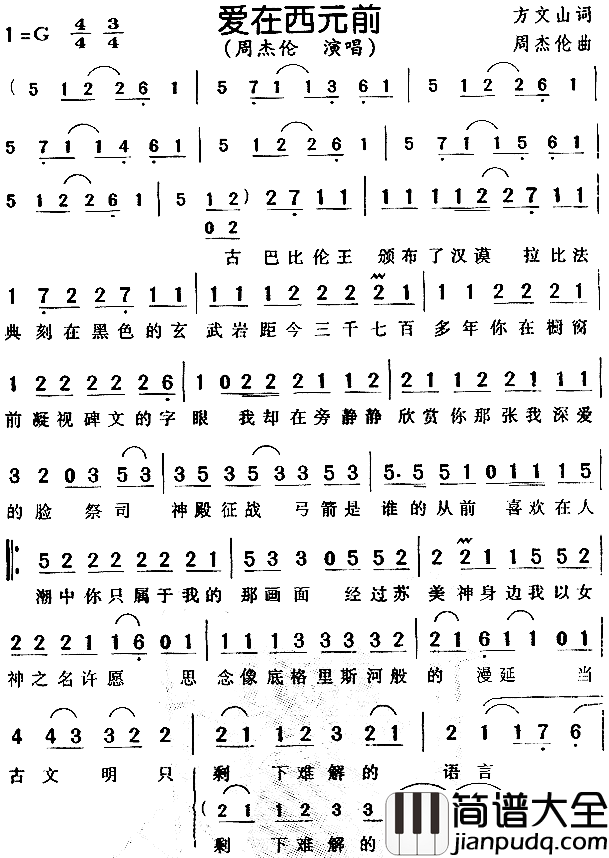 爱在西元前
1=G 4/4 3/4
(周杰伦 演唱)
方文山词
周杰伦曲
(5 1 2 2 6 1 | 5 7 1 1 3 6 1 | 5 1 2 2 6 1
5 7 1 1 4 6 1 | 5 1 2 2 6 1 | 5 7 1 1 5 6 1
5 1 2 2 6 1 | 5 1 2) 2 7 1 1 | 1 1 1 1 2 2 7 1 1
0 2
古 巴比伦王 颁布了汉谟 拉比法
1 7 2 2 7 1 1 | 1 1 1 2 2 2 2 1 | 1 2 2 2 2 1
典 刻在黑色的玄 武岩距今三千七百 多年你在橱窗
1 2 2 2 2 2 6 | 1 0 2 2 2 1 1 2 | 2 1 2 2 1 2 1 1
前凝视碑文的字 眼 我却在旁静静 欣赏你那张我深爱
3 2 0 3 5 3 | 3 5 3 5 3 5 3 3 | 5. 5 5 1 0 1 1 1
的脸 祭司 神殿征战 弓箭是 谁的从前 喜欢在人
5 2 2 2 2 2 2 1 | 5 3 3 0 5 5 2 | 2 1 1 5 5 2
潮中你只属于我的 那画面 经过苏 美神身边我以女
2 2 2 1 6 0 1 | 1 1 3 3 3 3 3 2 | 2 1 6 1 0 1
神之名许愿 思 念像底格里斯河般 的 漫延 当
4 4 3 3 2 2 | 2 1 1 2 3 2 1 | 2 1 1 7 6
古 文 明 只 剩 下难解的 语言
(2 1 1 2 3
剩 下难解的
简谱大全
jianpudq.com